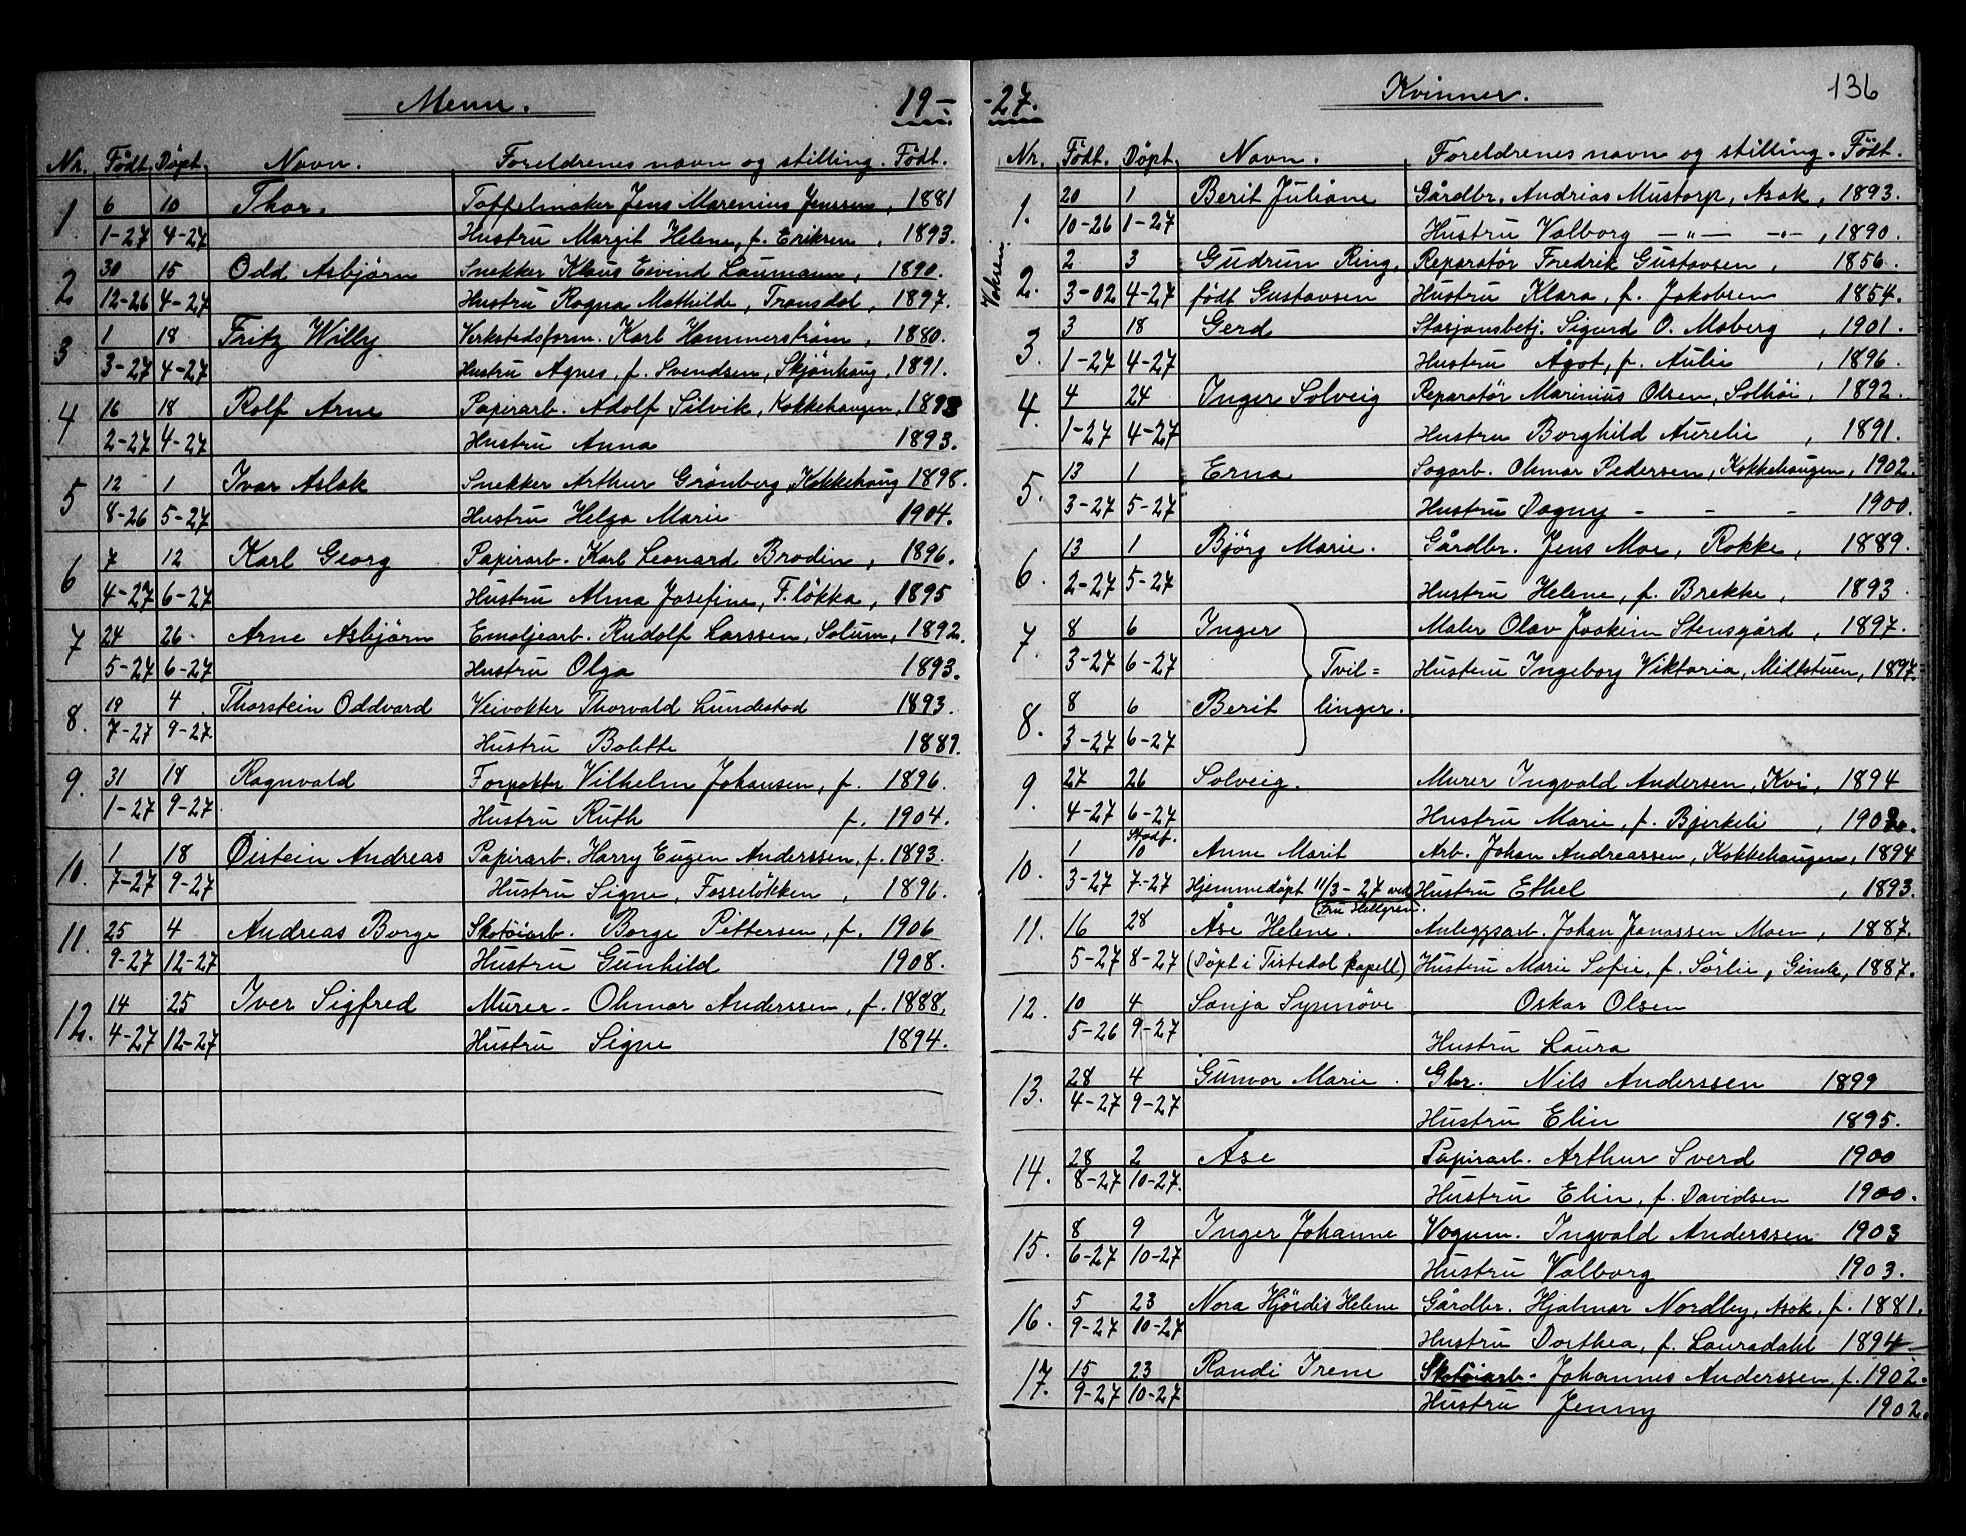 Menn. 19-
Nr. Født. Døpt. Navn. Foreldrenes navn og stilling. Født.
1 6 10 Thor. Tøffelmaker Jens Marenius Jenssen, 1881
1-27 4-27 Hustru Margit Helene, f. Eriksen, 1893.
2 30 15 Odd Asbjørn Snekker Klaus Eivind Laumann, 1890.
12-26 4-27 Hustru Ragna Mathilde, Transdal, 1897.
3 1 18 Fritz Willy Verkstedsform. Karl Hammerstrøm, 1880.
3-27 4-27 Hustru Agnes, f. Svendsen, Skjønhaug, 1891.
4 16 18 Rolf Arne Papirarb. Adolf Silvik, Kokkehaugen, 1893
2-27 4-27 Hustru Anna 1893.
5 12 1 Ivar Aslak Snekker Arthur Grønberg, Kokkehaug 1898.
8-26 5-27 Hustru Helga Marie 1904.
6 7 12 Karl Georg Papirarb. Karl Leonard Brodin, 1896.
4-27 6-27 Hustru Alma Josefine, F.løkka, 1895
7 24 26 Arne Asbjørn Emaljearb. Rudolf Larssen, Solum, 1892.
5-27 6-27 Hustru Olga 1893.
8. 19 4 Thorstein Oddvard Veivokter Thorvald Lundestad 1893.
7-27 9-27 Hustru Bolette 1889.
9. 31 18 Ragnvald Forpakter Vilhelm Johansen, f. 1896.
1-27 9-27 Hustru Ruth f. 1904.
10. 1 18 Øistein Andreas Papirarb. Harry Eugen Anderssen, f. 1893.
7-27 9-27 Hustru Signe, Fosseløkken, 1896.
11. 25 4 Andreas Borge Skotøiarb. Borge Pettersen, f. 1906
9-27 12-27 Hustru Gunhild 1908.
12. 14 25 Iver Sigfred Murer - Ohmar Anderssen, f. 1888,
4-27 12-27 Hustru Signe 1894.
-27. Kvinner. 136
Nr. Født. Døpt. Navn. Foreldrenes navn og stilling. Født.
1. 20 1 Berit Juliane Gårdbr. Andrias Mustorp, Asak, 1893.
10-26 1-27 Hustru Valborg -"- -"-, 1890.
Voksen
2. 2 3 Gudrun Ring, Reparatør Fredrik Gustavsen, 1856.
3-02 4-27 født Gustavsen Hustru Klara, f. Jakobsen 1854.
3. 3 18 Gerd Stasjonsbetj. Sigurd O. Moberg, 1901.
1-27 4-27 Hustru Ågot, f. Aulie, 1896.
4. 4 24 Inger Solveig Reparatør Marinius Olsen, Solhøi, 1892.
1-27 4-27 Hustru Borghild Aurelie, 1891.
5. 13 1 Erna Sagarb. Ohmar Pedersen, Kokkehaugen, 1902.
3-27 5-27 Hustru Dagny - - - 1900.
6. 13 1 Bjørg Marie. Gårdbr. Jens Moe, Rokke, 1889.
2-27 5-27 Hustru Helene, f. Brekke, 1893.
7. 8 6 Inger Maler Olav Joakim Stensgård, 1897.
3-27 6-27 Tvil= Hustru Ingeborg Viktoria, Midtstuen, 1897.
8. 8 6 Berit linger.
3-27 6-27
9. 27 26 Solveig. Murer Ingvald Andersen, Kvi, 1894
4-27 6-27 Hustru Marie, f. Bjerkeli, 1902.
Stadf.
10. 1 10 Anne Marit Arb. Johan Andreassen, Kokkehaugen, 1894
3-27 7-27 Hjemmedøpt 11/3-27 ved Hustru Ethel, 1893.
(Fru Hellgren.
11. 16 28 Åse Helene. Anleggsarb. Johan Janassen Moen, 1887.
5-27 8-27 (Døpt i Tistedal kapell) Hustru Marie Sofie, f. Sørlie, Gimle, 1887.
12. 10 4 Sonja Synnøve Oskar Olsen
5-26 9-27 Hustru Laura
13. 28 4 Gunvor Marie. Gbr. Nils Anderssen 1899
4-27 9-27 Hustru Elin 1895.
14. 28 2 Åse Papirarb. Arthur Sverd 1900
8-27 10-27. Hustru Elin, f. Davidsen 1900.
15. 8 9 Inger Johanne Vognm. Ingvald Anderssen 1903
6-27 10-27 Hustru Valborg 1903.
16. 5 23 Nora Hjørdis Helene Gårdbr. Hjalmar Nordby, Asak, f. 1881.
9-27 10-27 Hustru Dorthea, f. Lauradahl 1894
17. 15 23 Randi Irene Skotøiarb. Johannes Anderssen, f. 1902.
9-27 10-27 Hustru Jenny 1902.